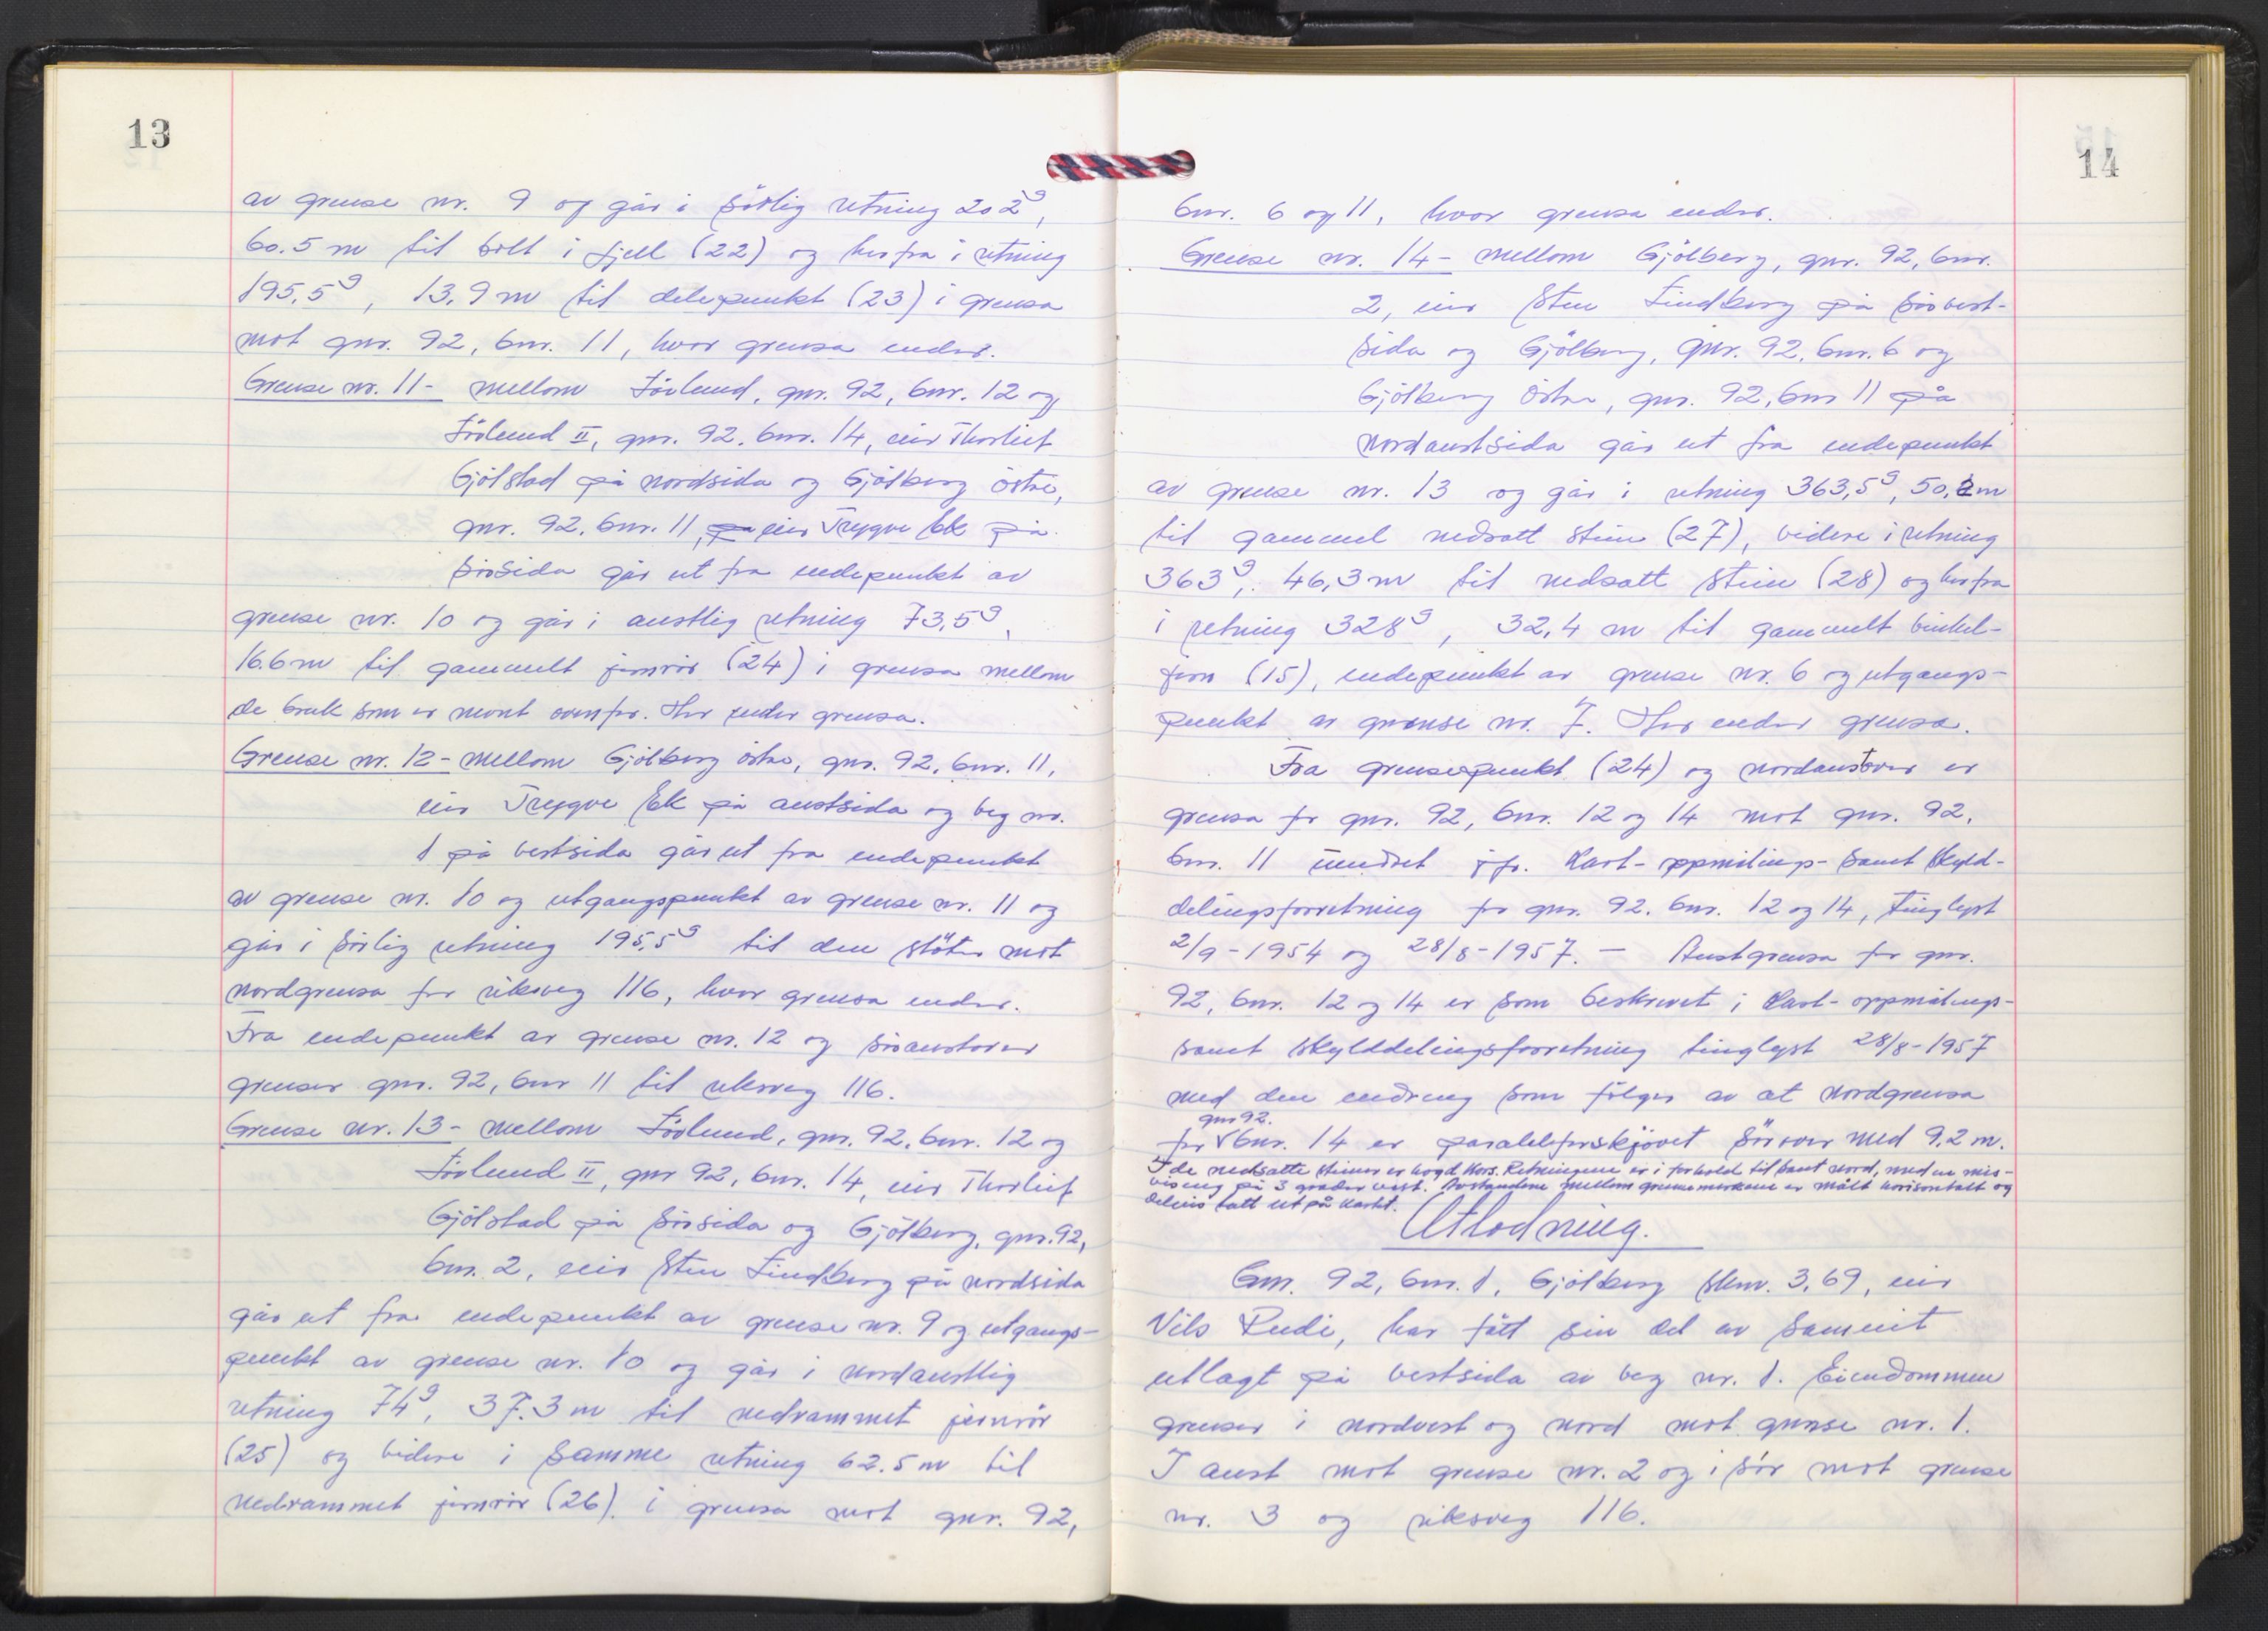 13
av grense nr. 9 og går i sörlig retning 202g,
60.5 m til bolt i fjell (22) og herfra i retning
195,5g, 13,9 m til delepunkt (23) i grensa
mot gnr. 92, bnr. 11, hvor grensa ender.
Grense nr. 11- mellom Lövlund, gnr. 92, bnr. 12 og
Lövlund II, gnr. 92, bnr. 14, eier Thorleif
Gjölstad på nordsida og Gjölberg östre,
gnr. 92, bnr. 11, på eier Trygve Ek på
sörsida går ut fra endepunkt av
grense nr. 10 og går i austlig retning 73,5g,
16.6 m til gammelt jernrör (24) i grensa mellom
de bruk som er nevnt ovenfor. Her ender grensa.
Grense nr. 12- mellom Gjölberg östre, gnr. 92, bnr. 11,
eier Trygve Ek på austsida og veg nr.
1 på vestsida går ut fra endepunkt
av grense nr. 10 og utgangspunkt av grense nr. 11 og
går i sörlig retning 195,5g til den stöter mot
nordgrensa for riksveg 116, hvor grensa ender.
Fra endepunkt av grense nr. 12 og söraustover
grenser gnr. 92, bnr 11 til riksveg 116.
Grense nr. 13- mellom Lövlund, gnr. 92, bnr. 12 og
Lövlund II, gnr 92, bnr. 14, eier Thorleif
Gjölstad på sörsida og Gjölberg, gnr. 92,
bnr. 2, eier Sten Lindberg på nordsida
går ut fra endepunkt av grense nr. 9 og utgangs-
punkt av grense nr. 10 og går i nordaustlig
retning 74g, 37.3 m til nedrammet jernrör
(25) og videre i samme retning 62.5 m til
nedrammet jernrör (26) i grensa mot gnr. 92,
14
bnr. 6 og 11, hvor grensa ender.
Grense nr. 14- mellom Gjölberg, gnr. 92, bnr.
2, eier Sten Lindberg på sörvest-
sida og Gjölberg, gnr. 92, bnr. 6 og
Gjölberg östre, gnr. 92, bnr 11 på
nordaustsida går ut fra endepunkt
av grense nr. 13 og går i retning 363,5g, 50, m
til gammel nedsatt stein (27), videre i retning
363g, 46,3 m til nedsatt stein (28) og herfra
i retning 328g, 32,4 m til gammelt vinkel-
jern (15), endepunkt av grense nr. 6 og utgangs-
punkt av grense nr. 7. Her ender grensa.
Fra grensepunkt (24) og nordaustover er
grensa for gnr. 92, bnr. 12 og 14 mot gnr. 92,
bnr. 11 uendret jfr. Kart- oppmålings- samt skyld-
delingsforretning for gnr. 92, bnr. 12 og 14, tinglyst
2/9-1954 og 28/8-1957. - Austgrensa for gnr.
92, bnr. 12 og 14 er som beskrevet i Kart- oppmålings-
samt skylddelingsforretning tinglyst 28/8-1957
med den endring som fölger av at nordgrensa
gnr 92.
for bnr. 14 er paralellforskjövet sörover med 9,2 m.
I de nedsatte steiner er hogd kors. Retningene er i forhold til sant nord, med en mis-
visning på 3 grader vest. Avstandene mellom grensemerkene er målt horisontalt og
delvis tatt ut på kartet.
Utlodning.
Gnr. 92, bnr. 1, Gjölberg skm. 3,69, eier
Nils Rudi, har fått sin del av sameiet
utlagt på vestsida av veg nr. 1. Eiendommen
grenser i nordvest og nord mot grense nr. 1.
I aust mot grense nr. 2 og i sör mot grense
nr. 3 og riksveg 116.